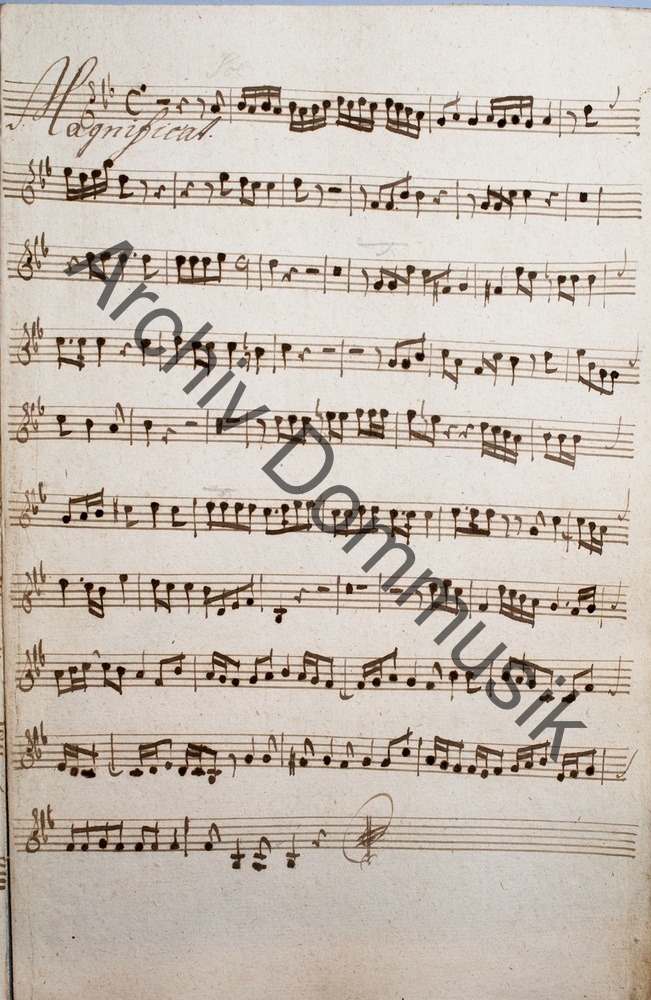 Magnificat.
Archiv Dommusik